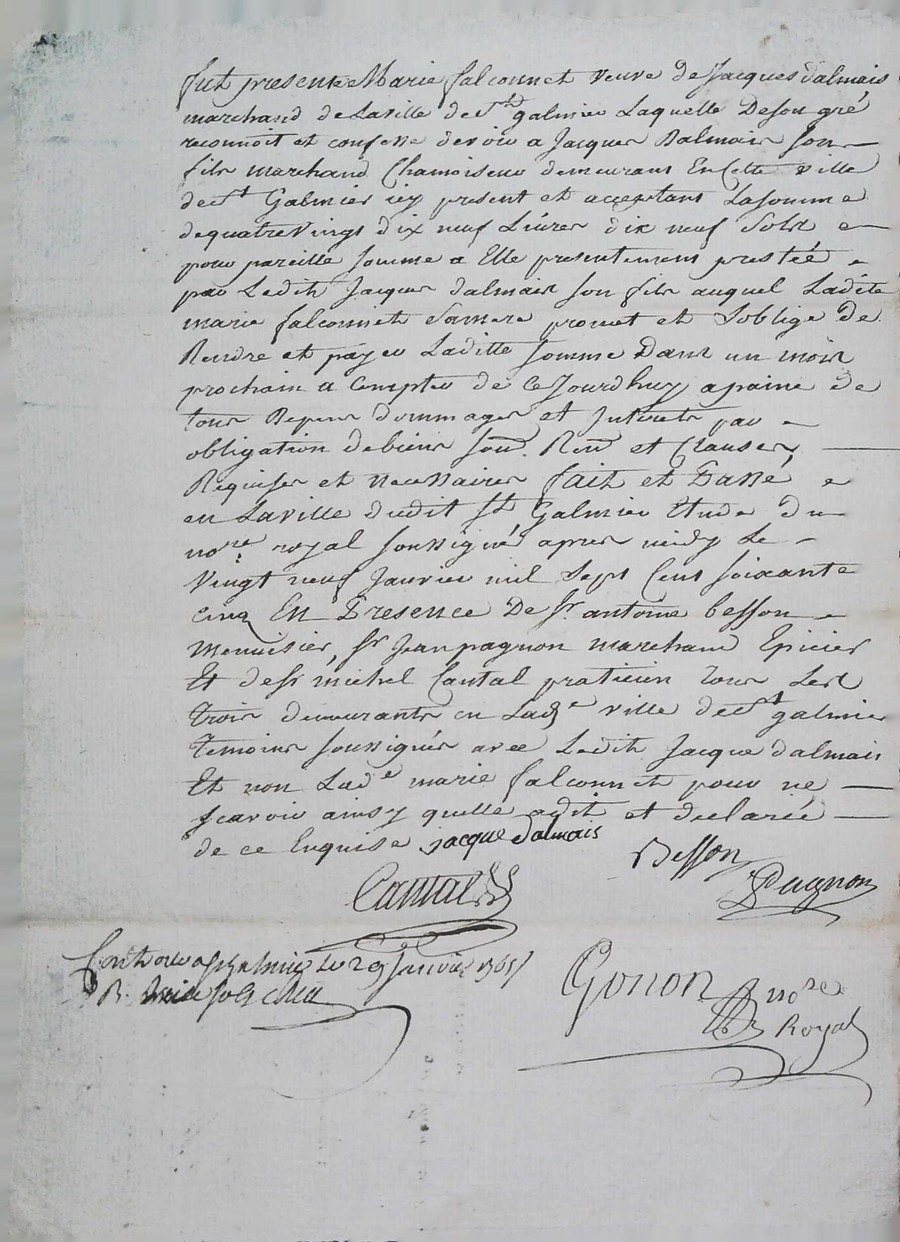 fut presente Marie falconnet veuve de Jacques dalmais
marchand de Laville de st galmier Laquelle Deson gré
reconnoit et confesse devoir a Jacques Dalmais son
fils marchand Chamoiseur demeurant En Cette ville
de st Galmier icy present et acceptant La somme
de quatre vings dix neuf Livres dix neuf Sols
pour pareille somme a Elle presentement prestée
par Ledit Jacques dalmais son fils auquel Ladite
marie falconnet Samere promet et Soblige de
Rendre et payer Laditte somme Dans un mois
prochain a Compter de Ce Jourdhuy apaine de
tous Depens dommages et Interets par
obligation debiens soum. Ren et Clauses
Requises et necessaires fait et Passé
en Laville dudit st Galmier Etude du
nore royal soussigné apres midy Le
Vingt neuf Janvier mil Sept Cent soixante
cinq En Presence De sr. antoine besson
menuisier, sr Jean pagnon marchand Epicier
Et de sr michel Cantal praticien tous Les
trois demeurants en Lade ville de st galmier
temoins soussignés avec Ledit Jacque dalmais
Et non Lade marie falconnet pour ne
scavoir ainsy quelle adit et declaré
de ce Enquise jacque dalmais
Besson
Cantal
Pagnon
Controlé a st galmier le 29 Janvier 1765
R. sols
Gonon nore
Royal